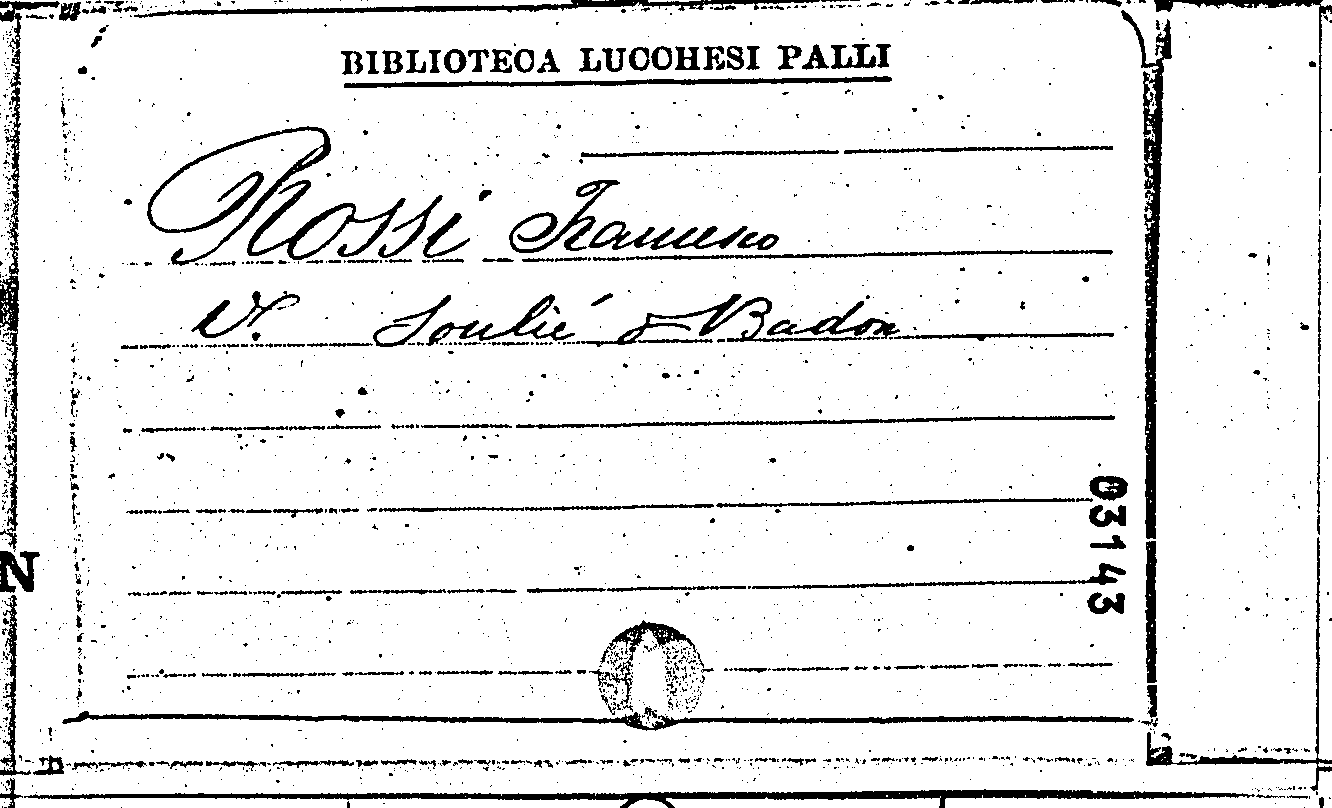 BIBLIOTECA LUCCHESI PALLI
Rossi Francesco
V. Soulié & Badon
03143
N